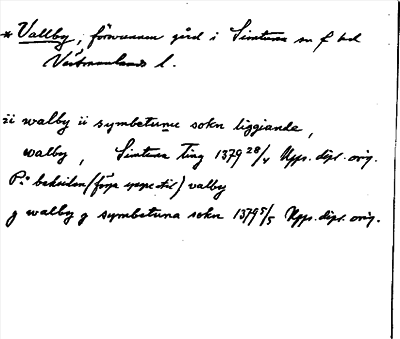 * Vallby, försvunnen gård i Simtuna sn f hd
Västmanlands l.
ii walby ii symbetune sokn liggiande,
walby, Simtuna Ting 1379 28/4 Upps. dipl. orig.
På baksidan (förra uppe till) valby
j walby j symbetuna sokn 1379 5/5 Upps. dipl. orig.